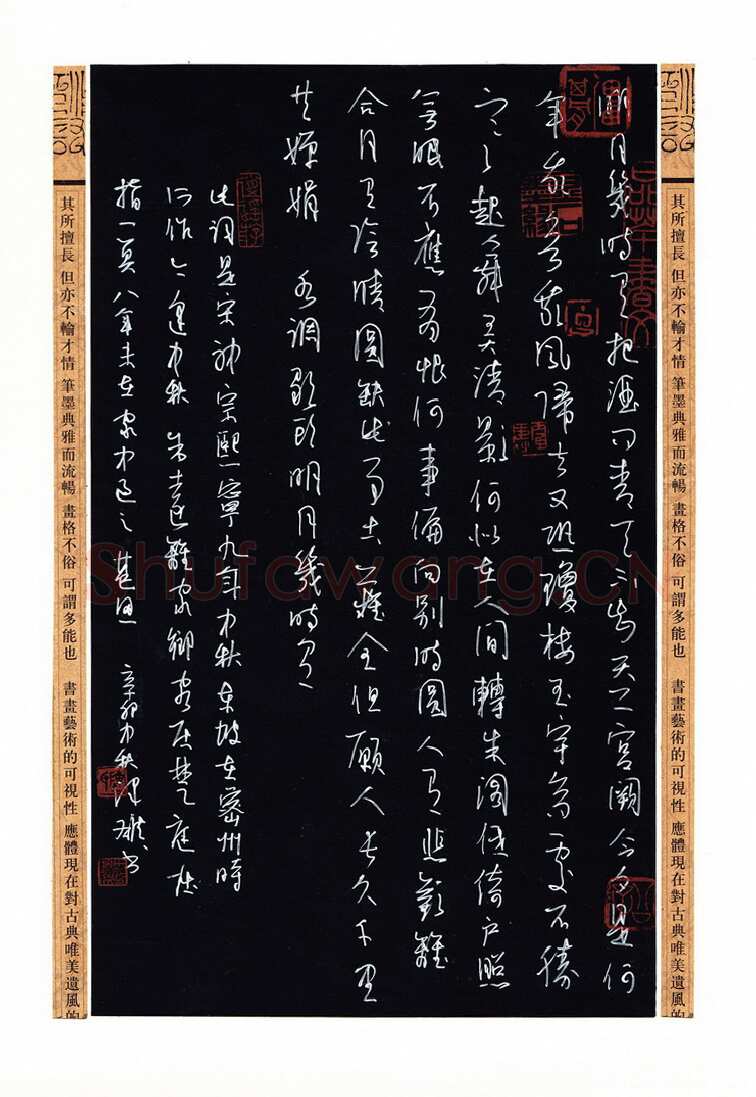 其所擅長 但亦不輸才情 筆墨典雅而流暢 畫格不俗 可謂多能也 書畫藝術的可視性 應體現在對古典唯美遺風的
明月幾時有把酒问青天不知天上宮闕今夕是何
年我欲乘風歸去又恐瓊樓玉宇高處不勝
寒起舞弄清影何似在人間轉朱閣低綺户照
無眠不應有恨何事偏向别時圓人有悲歡離
合月有陰晴圓缺此事古難全但願人長久千里
共嬋娟 水調歌頭明月幾時有
此詞是宋神宗熙寧九年中秋東坡在密州時
所作今逢中秋吾遠離家鄉客居楚庭屈
指一算八年未在家中過之 辛卯中秋 書
其所擅長 但亦不輸才情 筆墨典雅而流暢 畫格不俗 可謂多能也 書畫藝術的可視性 應體現在對古典唯美遺風的
Shufawang.CN